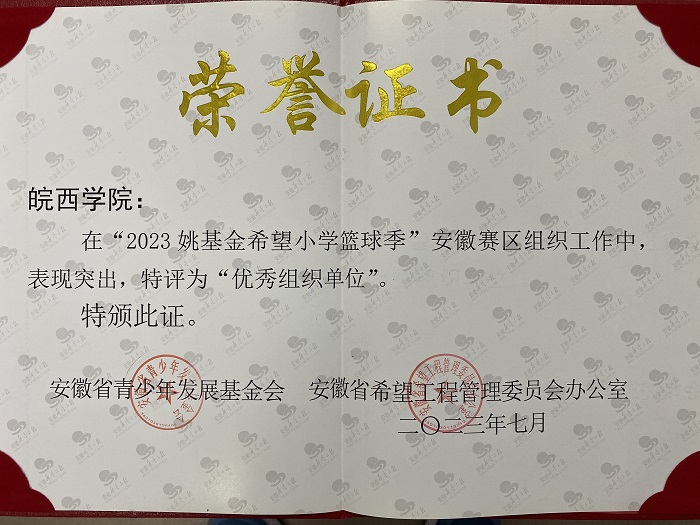 荣誉证书
皖西学院：
在“2023姚基金希望小学篮球季”安徽赛区组织工作中，
表现突出，特评为“优秀组织单位”。
特颁此证。
安徽省青少年发展基金会 安徽省希望工程管理委员会办公室
二〇二三年七月